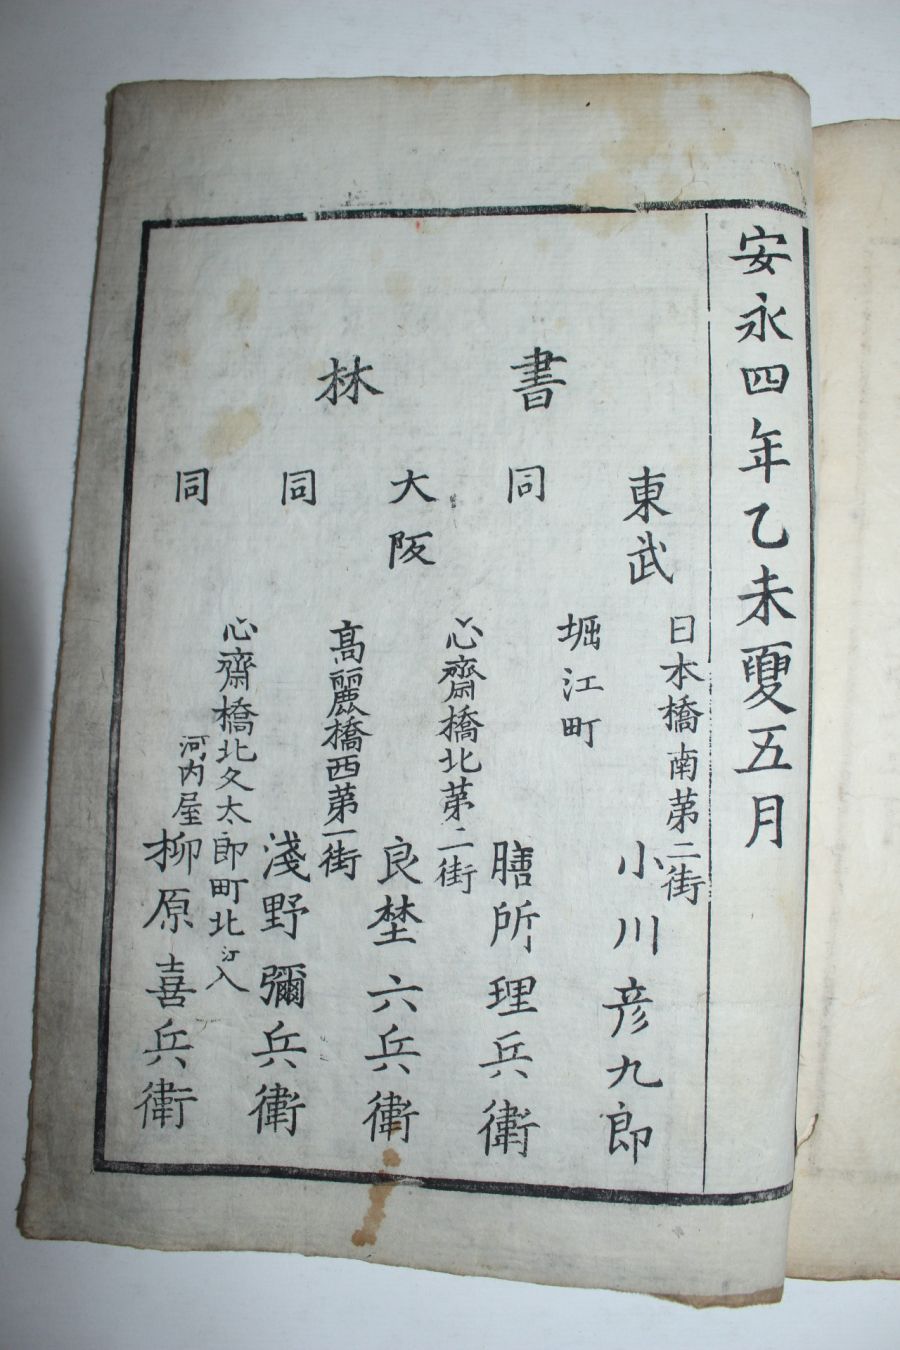 安永四年乙未夏五月
書林
東武
日本橋南第二街
小川彦九郎
同
堀江町
膳所理兵衛
大阪
心齋橋北第二街
良埜六兵衛
同
高麗橋西第一街
淺野彌兵衛
同
心齋橋北久太郎町北ヘ入
河内屋
柳原喜兵衛